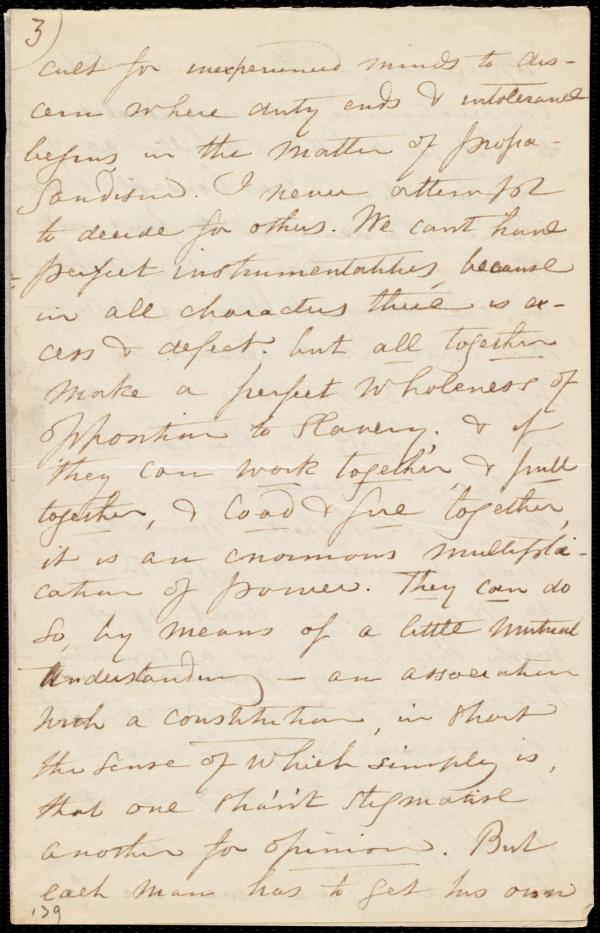 3)
cult for inexperienced minds to dis-
cern where duty ends & intolerance
begins, in the matter of propa-
gandism. I never attempt
to decide for others. We can't have
perfect instrumentalities, because
in all characters there is ex-
cess & defect. but all together
make a perfect wholeness of
opposition to Slavery. & if
they can work together, & pull
together, & load & fire together,
it is an enormous multipli-
cation of power. They can do
so, by means of a little mutual
understanding - an association
with a constitution, in short
the sense of which simply is,
that one sha'n't stigmatise
another for opinion. But
each man has to get his own
139